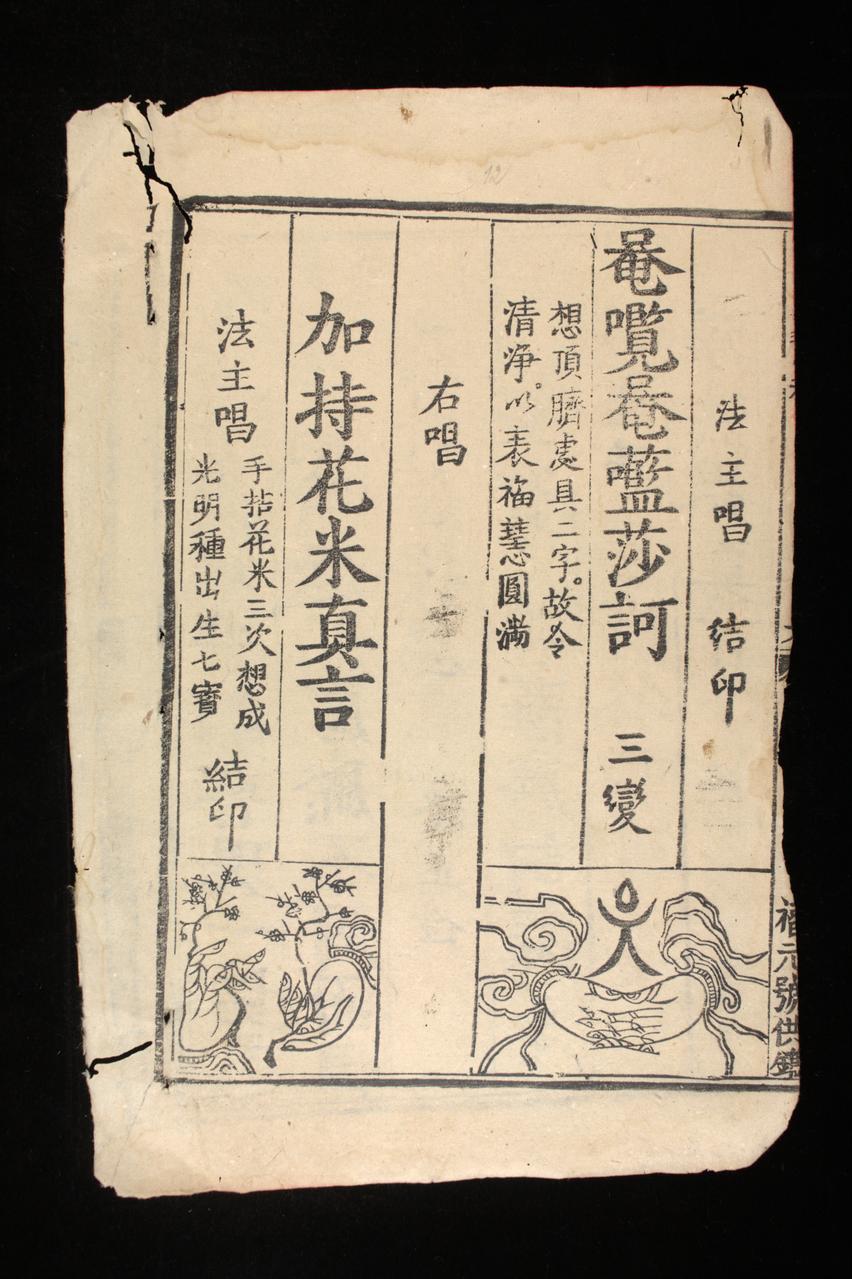 法主唱 結印
唵囕唵藍莎訶 三變
想頂臍處具二字。故令
清淨。以表福慧圓滿
右唱
加持花米真言
法主唱
手拈花米三次想成
光明種出生七寶
結印
福元號供鐫